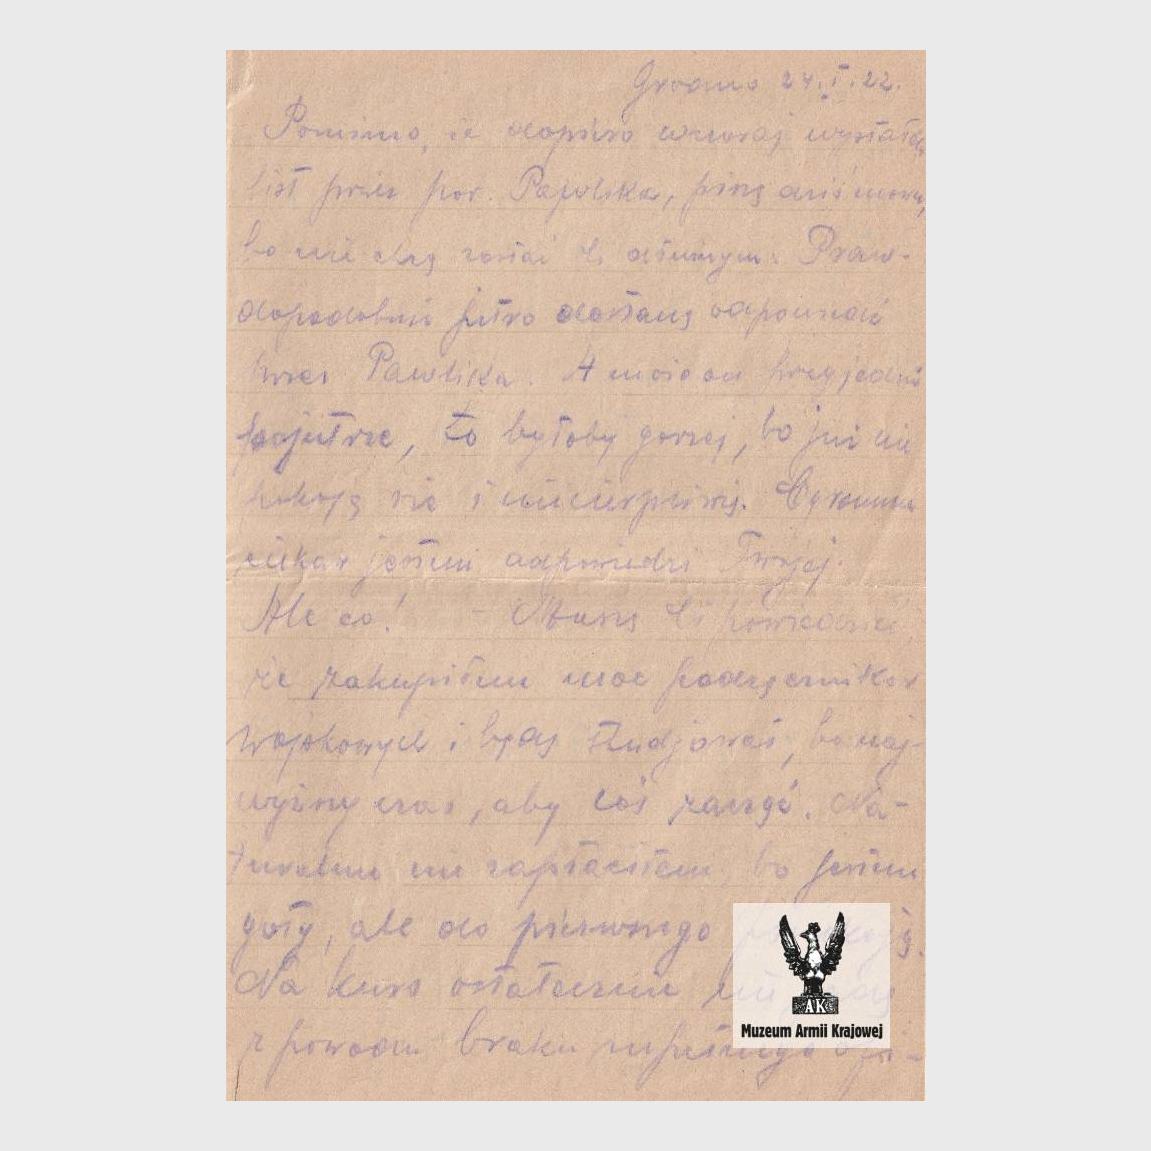 Grodno 24.I.22.
Pomimo, że dopiero wczoraj wysłałem
list przez por. Pawlika, piszę dziś znowu,
bo nie chcę zostać Ci dłużnym. Praw-
dopodobnie jutro dostanę odpowiedź
przez Pawlika. A może on przyjedzie
pojutrze, to byłoby gorzej, bo już nie
pokoję się i niecierpliwię.
ciekaw jestem odpowiedzi Twojej.
Ale co! – Muszę Ci powiedzieć,
że zakupiłem moc podręczników
wojskowych i będę studjować, bo naj-
wyższy czas, aby coś zacząć. Na-
turalnie nie zapłaciłem, bo jestem
goły, ale do pierwszego
Na kurs ostatecznie nie
z powodu braku zupełnego ofi-
AK
Muzeum Armii Krajowej